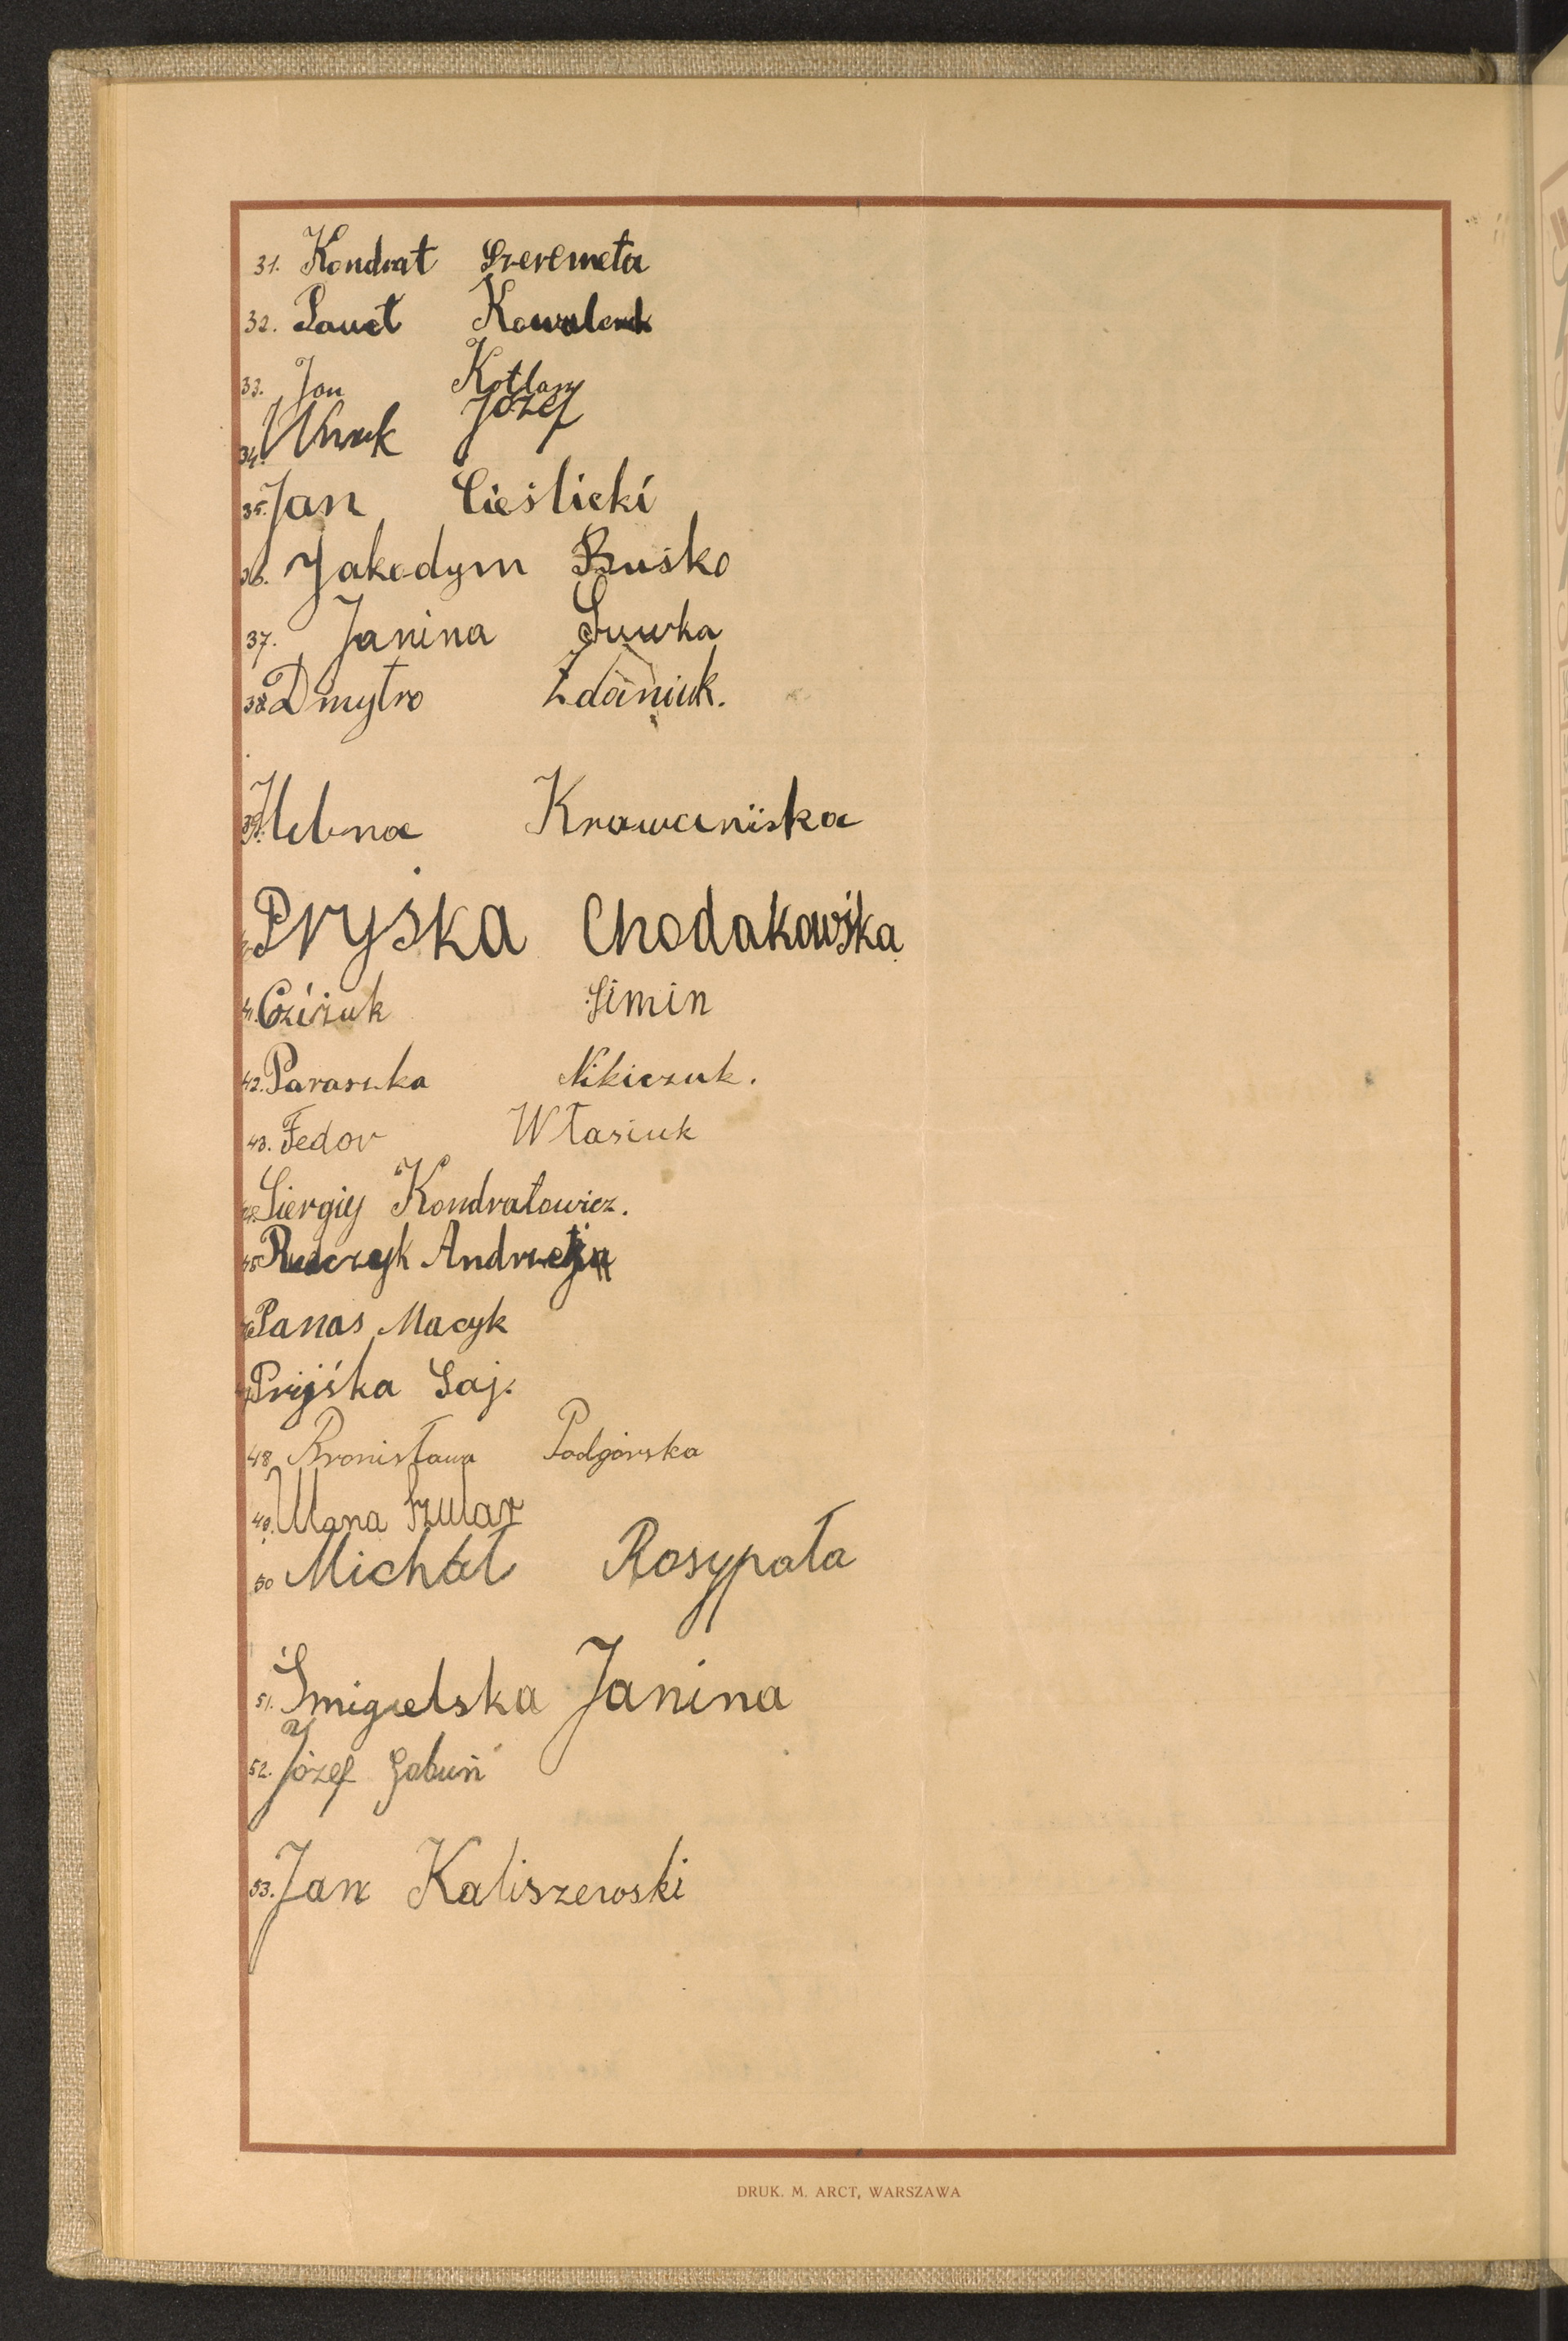 31. Kondrat Szeremeta
32. Paweł Kowalcuk
33. Jan Kotlarz
34. Wnuk Józef
35. Jan Cieślicki
36. Jakodym Buśko
37. Janina Suwka
38. Dmytro Zdaniuk.
39. Helena
Pryśka Chodakowśka
41. Simin
42. Paraszka Nikiczuk.
43. Fedor Własiuk
44. Siergiy Kondratowicz.
45. Rudczyk Andrzej
46. Panas Macyk
47. Pryjśka Gaj.
48. Bronisława Podgórska
49. Ulana Szular
50 Michał Rosypała
51. Śmigielska Janina
52. Józef Gabuń
53. Jan Kaliszewski
DRUK. M. ARCT, WARSZAWA